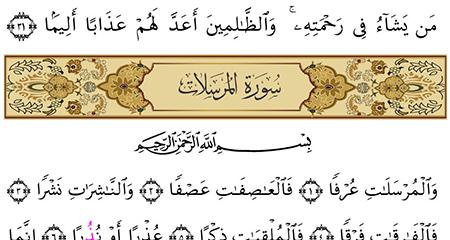 مَن يَشَآءُ فِى رَحْمَتِهِۦ ۚ وَٱلظَّـٰلِمِينَ أَعَدَّ لَهُمْ عَذَابًا أَلِيمًۢا ﴿٣١﴾
سُورَةُ المُرْسَلَات
بِسْمِ ٱللَّهِ ٱلرَّحْمَـٰنِ ٱلرَّحِيمِ
وَٱلْمُرْسَلَـٰتِ عُرْفًا ﴿١﴾ فَٱلْعَـٰصِفَـٰتِ عَصْفًا ﴿٢﴾ وَٱلنَّـٰشِرَٰتِ نَشْرًا ﴿٣﴾
فَٱلْفَـٰرِقَـٰتِ فَرْقًا ﴿٤﴾ فَٱلْمُلْقِيَـٰتِ ذِكْرًا ﴿٥﴾ عُذْرًا أَوْ نُذُرًا ﴿٦﴾ إِنَّمَا